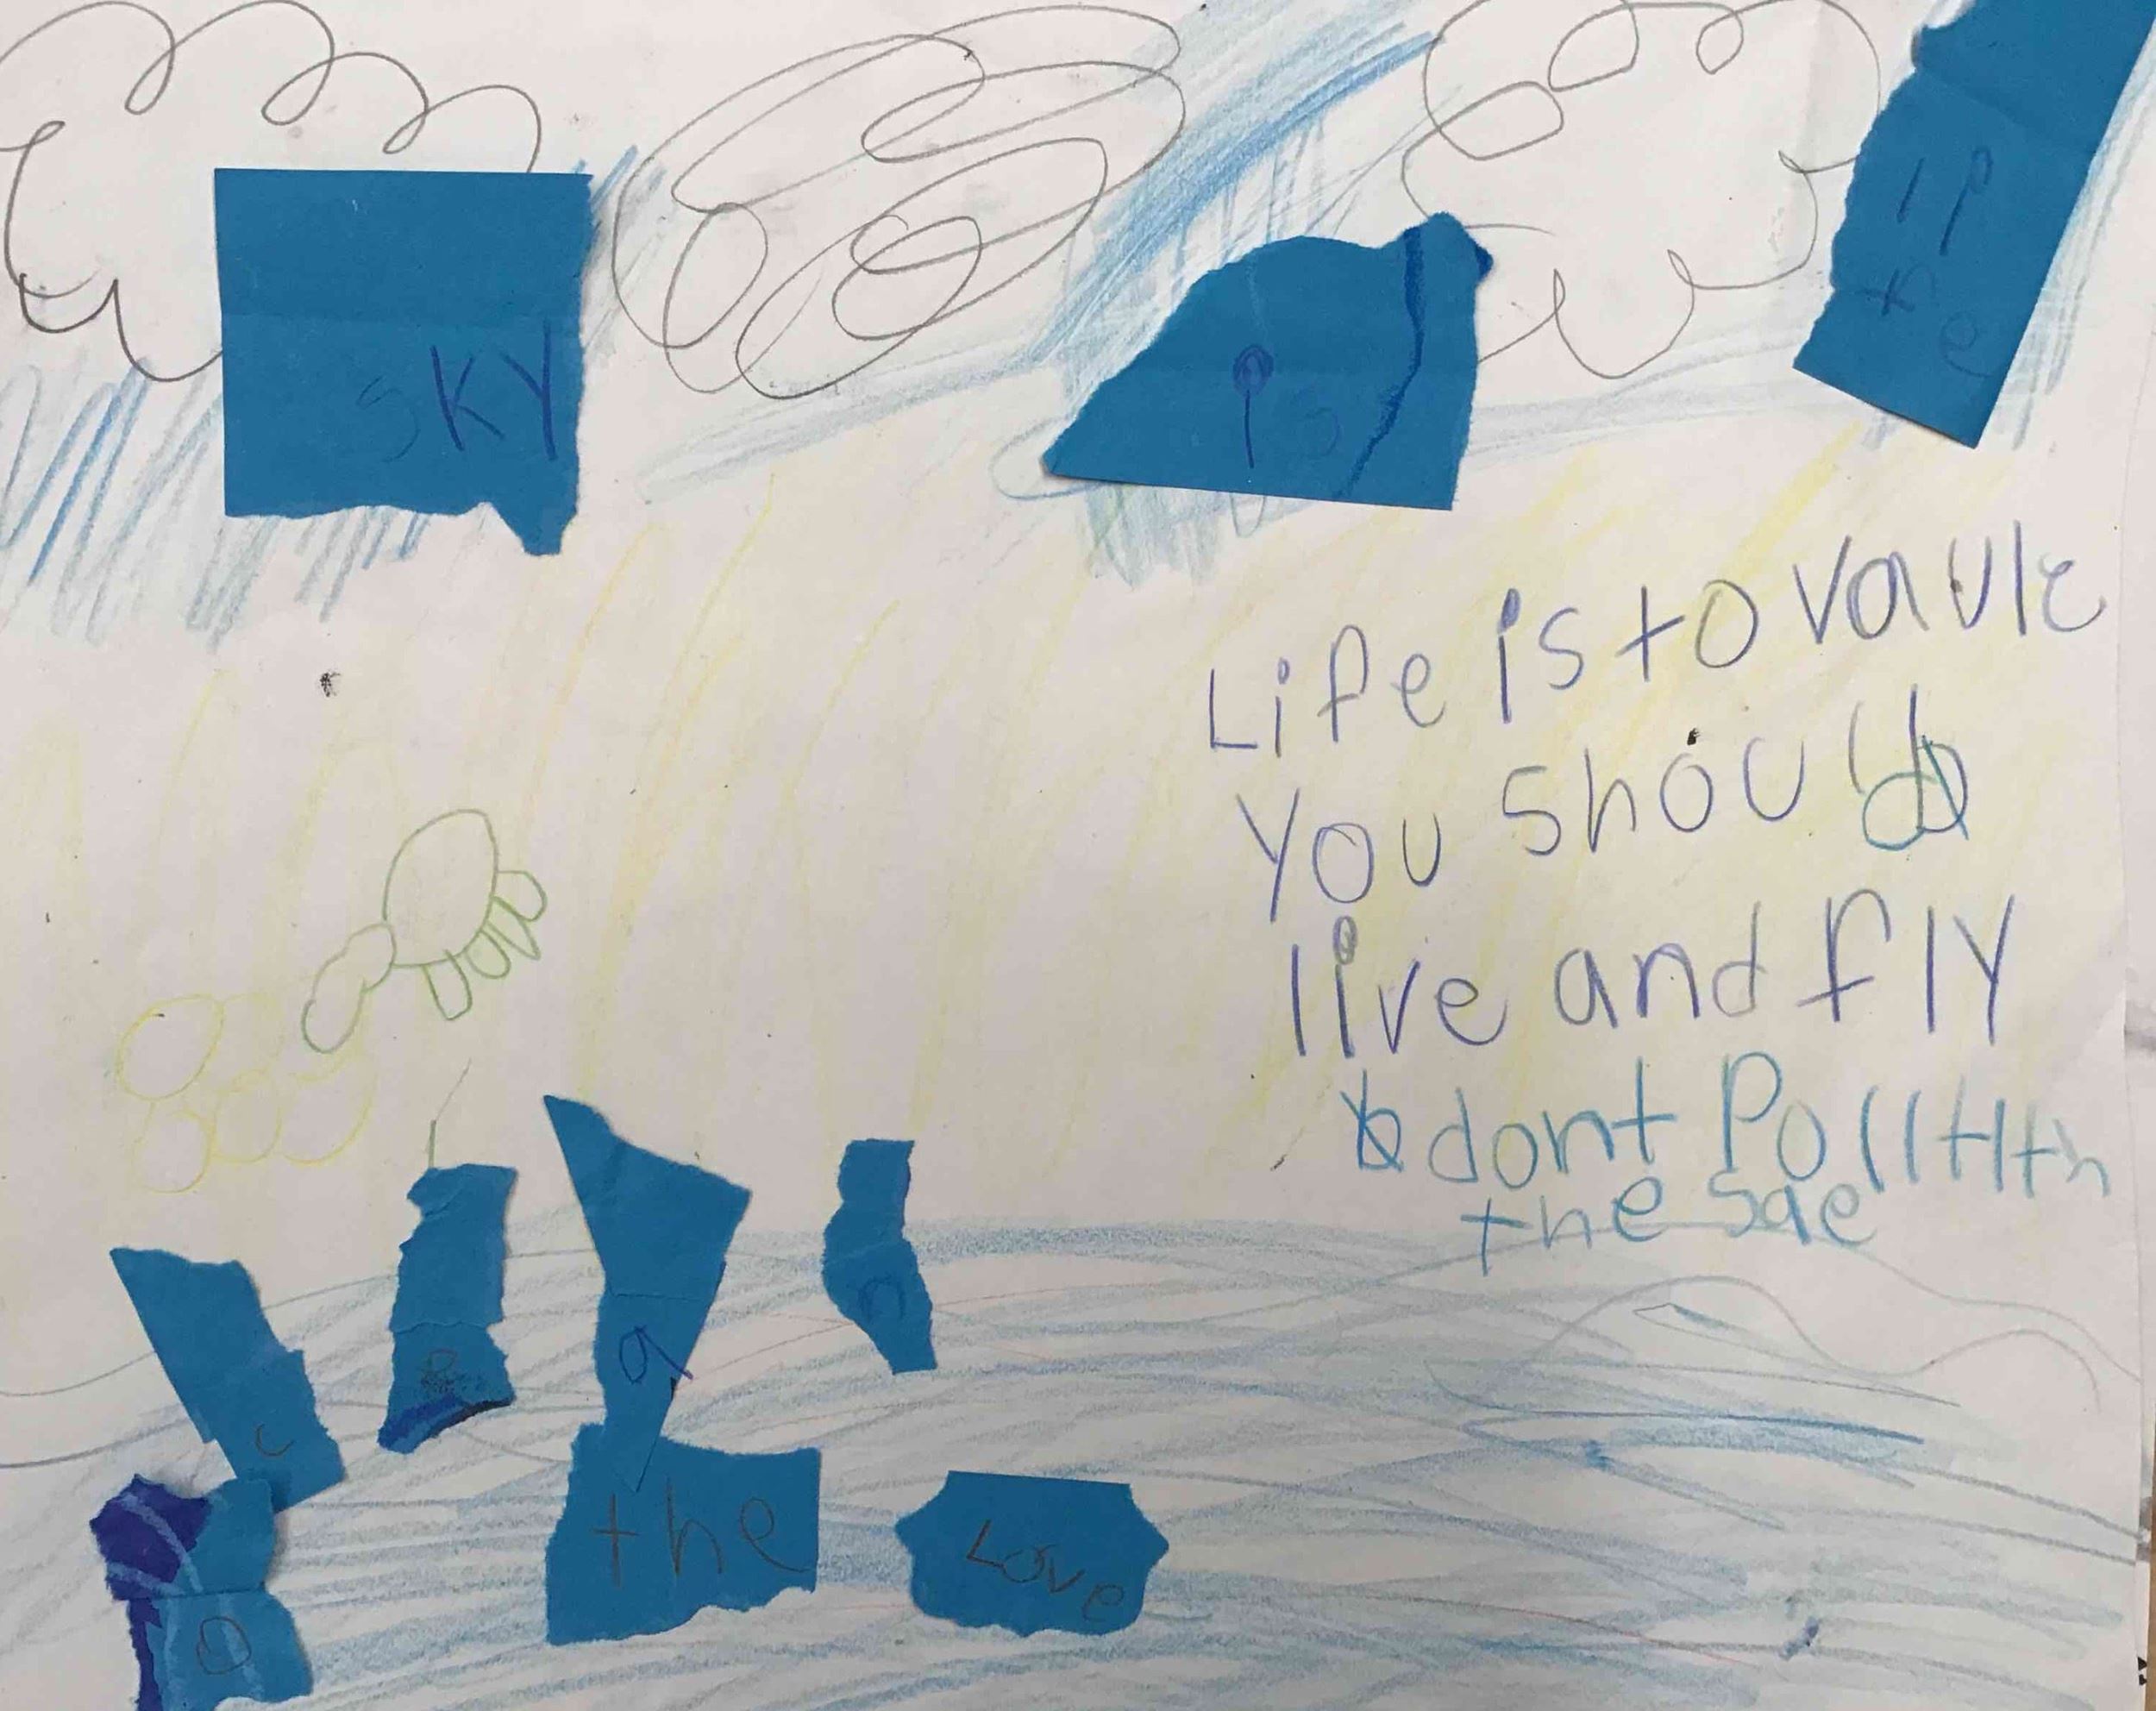 SKY
is
life
Life is to vaule
you should
live and fly
dont Polltith
the sae
O
c
e
a
n
the
Love